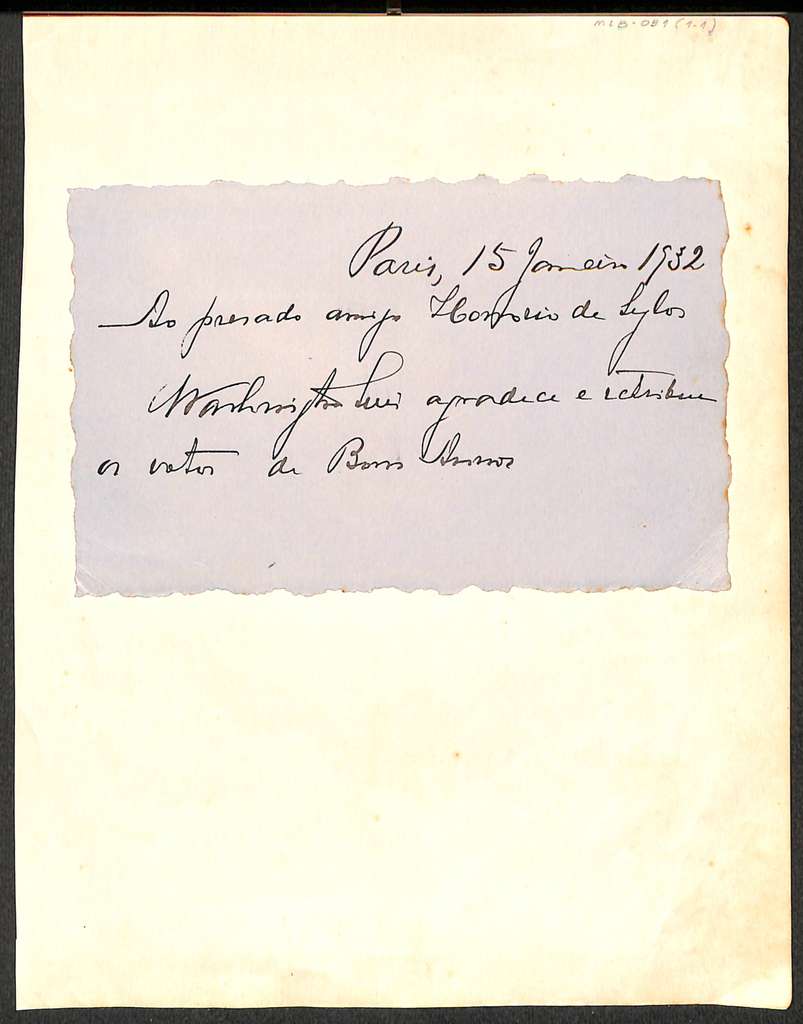 MLB-081 (1-1)
Paris, 15 Janeiro 1932
Ao presado amigo Honorio de Sylos
Washington Luis agradece e retribue
os votos de Bons Annos